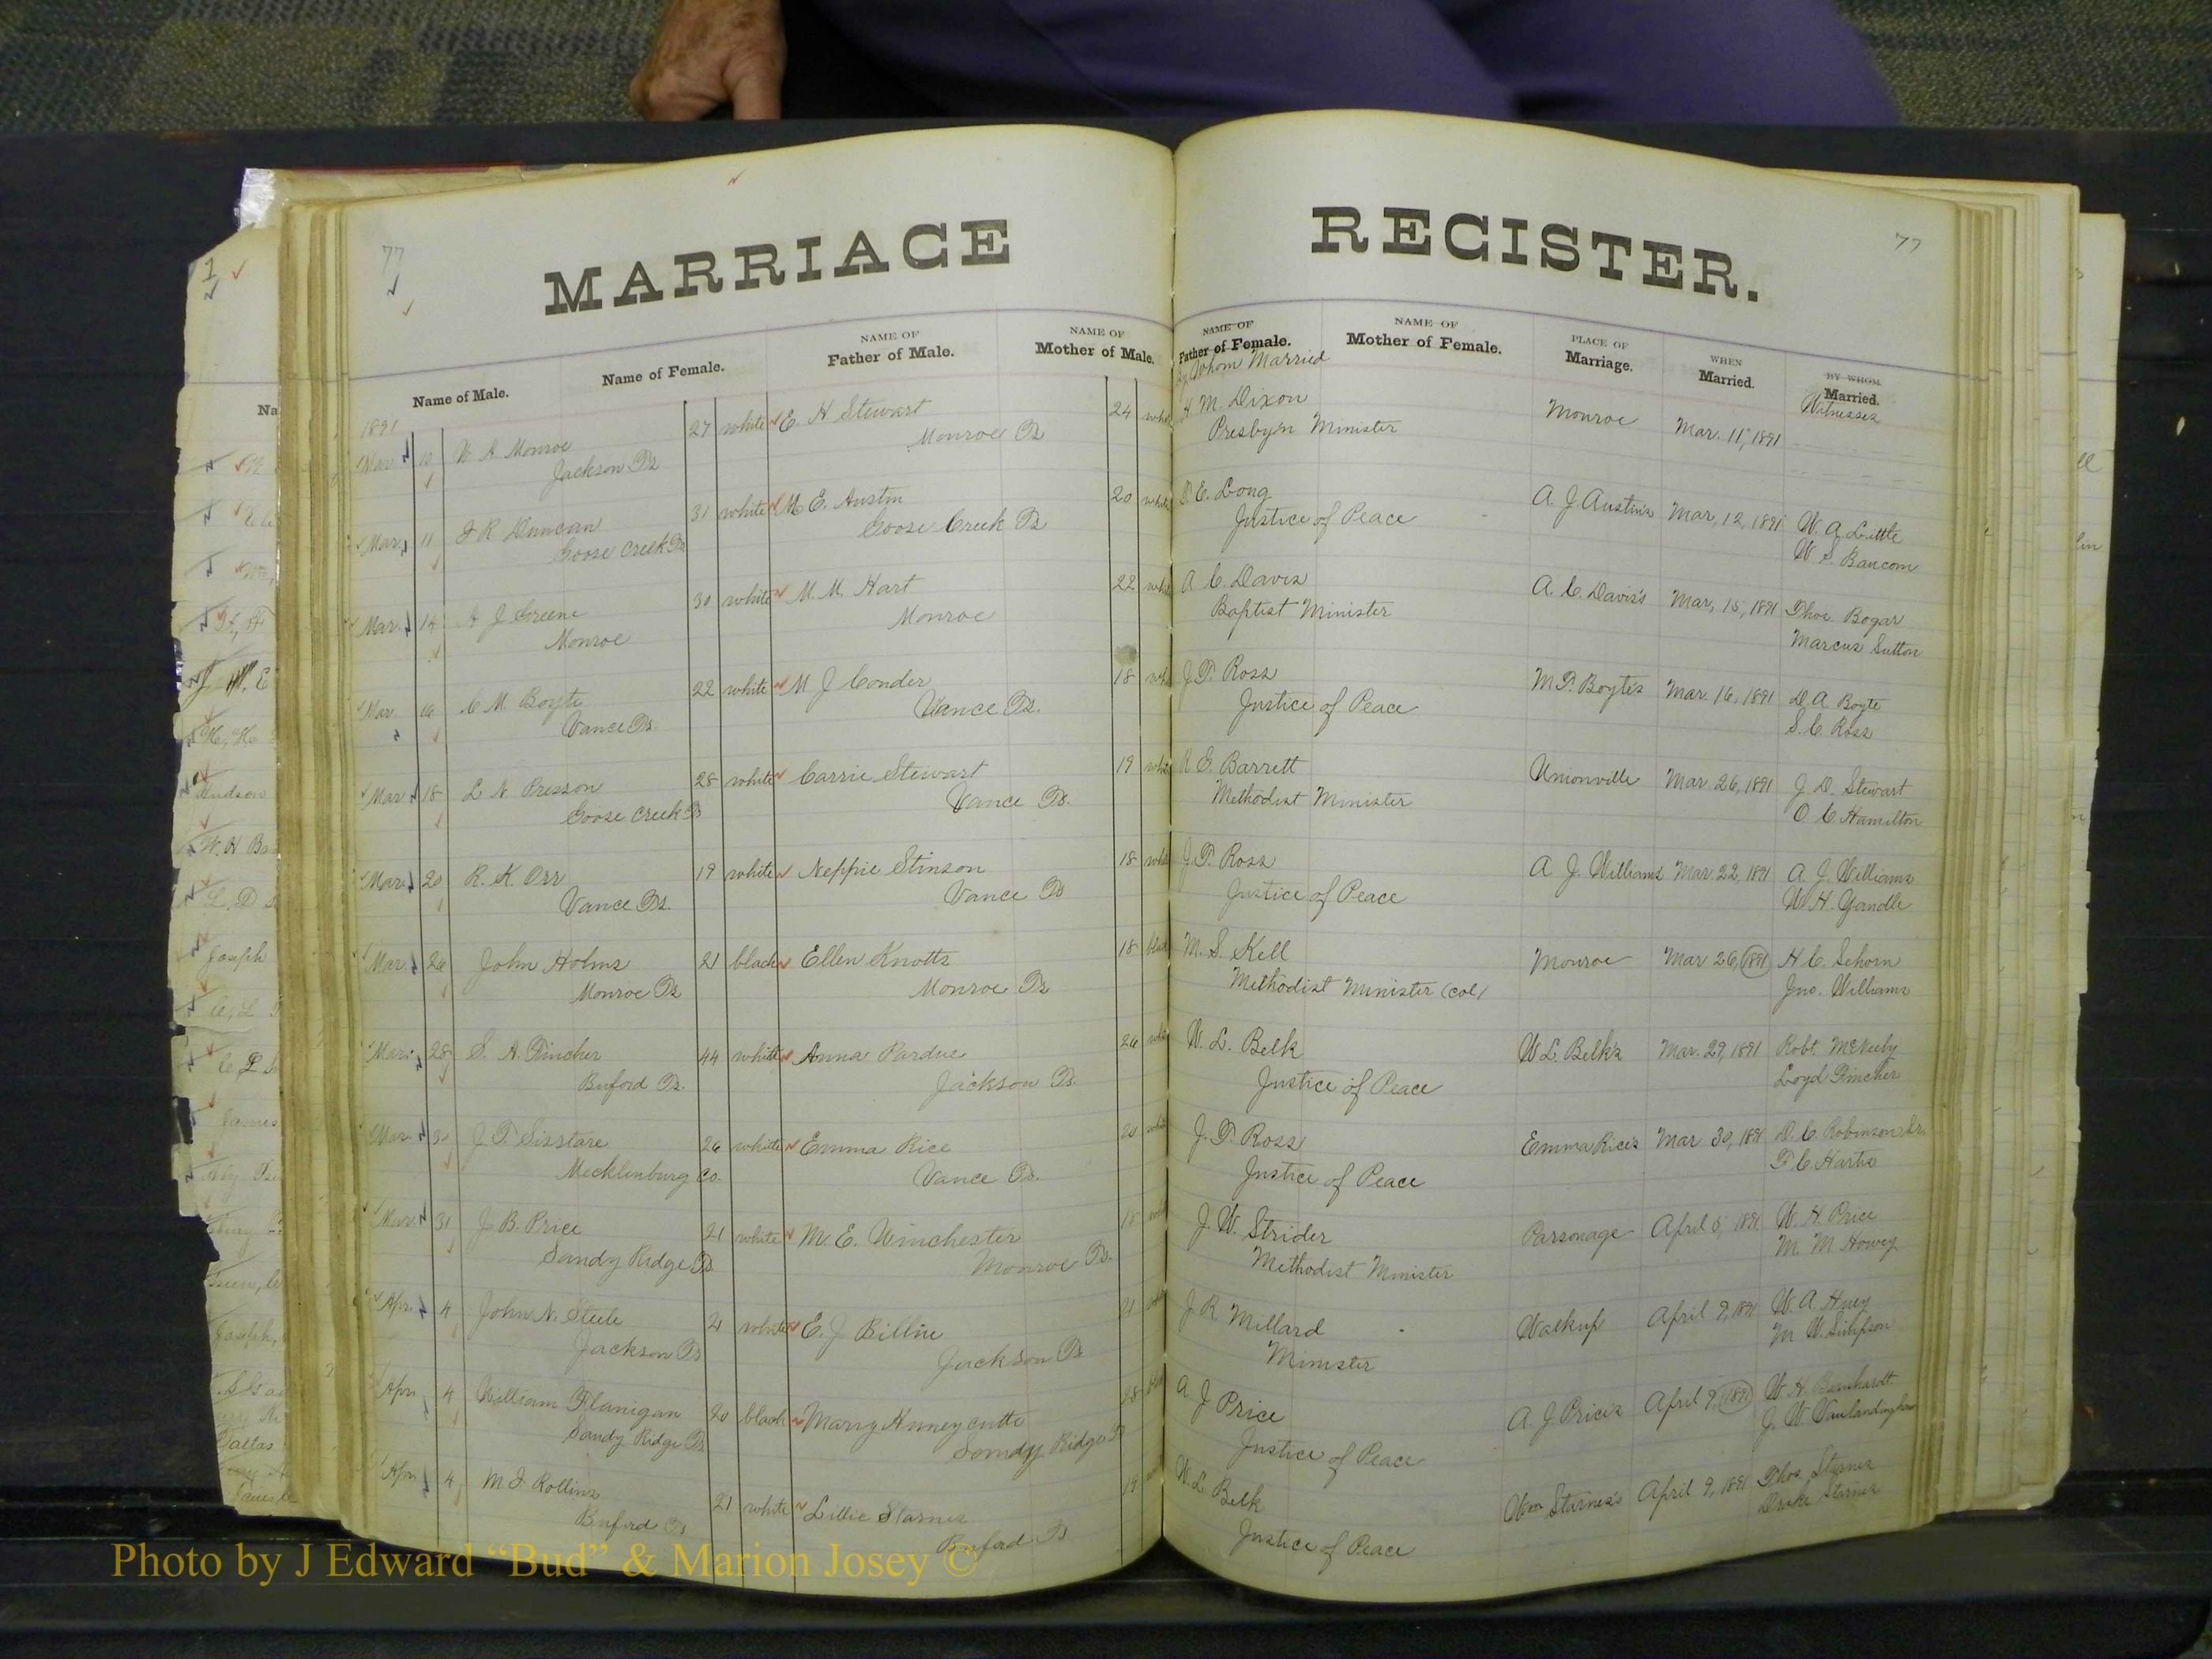 MARRIAGE REGISTER.
77
77
Name of Male.
Name of Female.
NAME OF
Father of Male.
NAME OF
Mother of Male.
NAME OF
Father of Female.
By Whom Married
NAME OF
Mother of Female.
PLACE OF
Marriage.
WHEN
Married.
BY WHOM
Married.
Witnesses
1891
Mar. 10 W A Monroe 27 white E. H Stewart 24 H M. Dixon Monroe Mar. 11, 1891
Jackson Ts Monroe Ts Presby'n Minister
Mar. 11 J R Duncan 31 white M E. Austin 20 white D. E. Long A. J. Austin's Mar, 12, 1891 W. A. Little
Goose Creek Ts Goose Creek Ts Justice of Peace W. S. Baucom
Mar. 14 A J Greene 30 white M. M. Hart 22 A C. Davis A. C. Davis's Mar, 15, 1891 Thos. Bogar
Monroe Monroe Baptist Minister Marcus Sutton
Mar. 16 C M. Boyte 22 white M J Conder 18 J. T. Ross M T. Boyte's Mar. 16, 1891 D. A Boyte
Vance Ts Vance Ts. Justice of Peace S. C. Ross
Mar. 18 L N Presson 28 white Carrie Stewart 19 R E. Barrett Unionville Mar. 26, 1891 J. D. Stewart
Goose Creek Ts Vance Ts. Methodist Minister O C Hamilton
Mar. 20 R. K. Orr 19 white Neppie Stinson 18 J. T. Ross A. J. Williams Mar. 22, 1891 A. J. Williams
Vance Ts. Vance Ts Justice of Peace W. H. Yandle
Mar. 26 John Holms 21 black Ellen Knotts 18 M. S. Kell Monroe Mar 26, 1891 H C. Sehorn
Monroe Ts Monroe Ts Methodist Minister (col) Jno. Williams
Mar. 28 S. A. Fincher 44 white Anna Pardue W. L. Belk W L. Belk's Mar. 29, 1891 Robt.
Buford Ts. Jackson Ts. Justice of Peace Loyd Fincher
Mar. J. T. Sisstare 26 white Emma Rice 20 J. T. Ross Emma Rice's Mar 30, 1891 D. C. Robinson
Mecklenburg Co. Vance Ts. Justice of Peace
Mar. 31 J. B. Price 21 white M. E. Winchester 18 J. W. Strider Parsonage April 5, 1891 W. H. Price
Sandy Ridge Ts Monroe Ts. Methodist Minister M. M Howey
Apr. 4 John N. Steele 21 white E. J. 21 J. R. Millard Walkup April 9, 1891 W. A. Huey
Jackson Ts Jackson Ts Minister M W. Simpson
Apr. 4 William Flanigan 20 black Marry Huneycutt 28 A. J Price A. J. Price's April 9, 1891 W. H. Barnhardt
Sandy Ridge Ts Sandy Ridge Ts Justice of Peace J. W Vanlandingham
Apr. 4 M. J. Rollins 21 white Lillie Starnes 19 W. L. Belk Wm Starnes's April 9, 1891 Thos Starnes
Buford Ts Buford Ts Justice of Peace Drake Starnes
Photo by J Edward “Bud” & Marion Josey ©